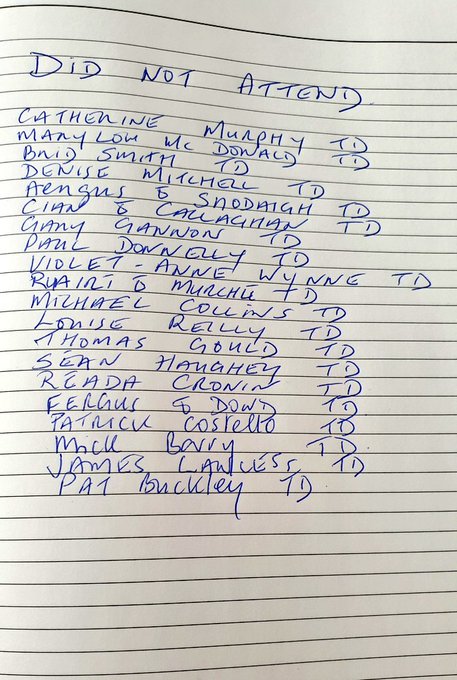 DiD NOT ATTEND
CATHERINE MURPHY TD
MARY LOU Mc DONALD TD
BRID SMITH TD
DENISE MITCHELL TD
AENGUS Ó SNODAIGH TD
CIAN Ó CALLAGHAN TD
GARY GANNON TD
PAUL DONNELLY TD
VIOLET-ANNE WYNNE TD
RUAIRI Ó MURCHÚ TD
MICHAEL COLLINS TD
LOUISE REILLY TD
THOMAS GOULD TD
SEAN HAUGHEY TD
READA CRONIN TD
FERGUS Ó DOWD TD
PATRICK COSTELLO TD
MICK BARRY TD
JAMES LAWLESS TD
PAT BUCKLEY TD